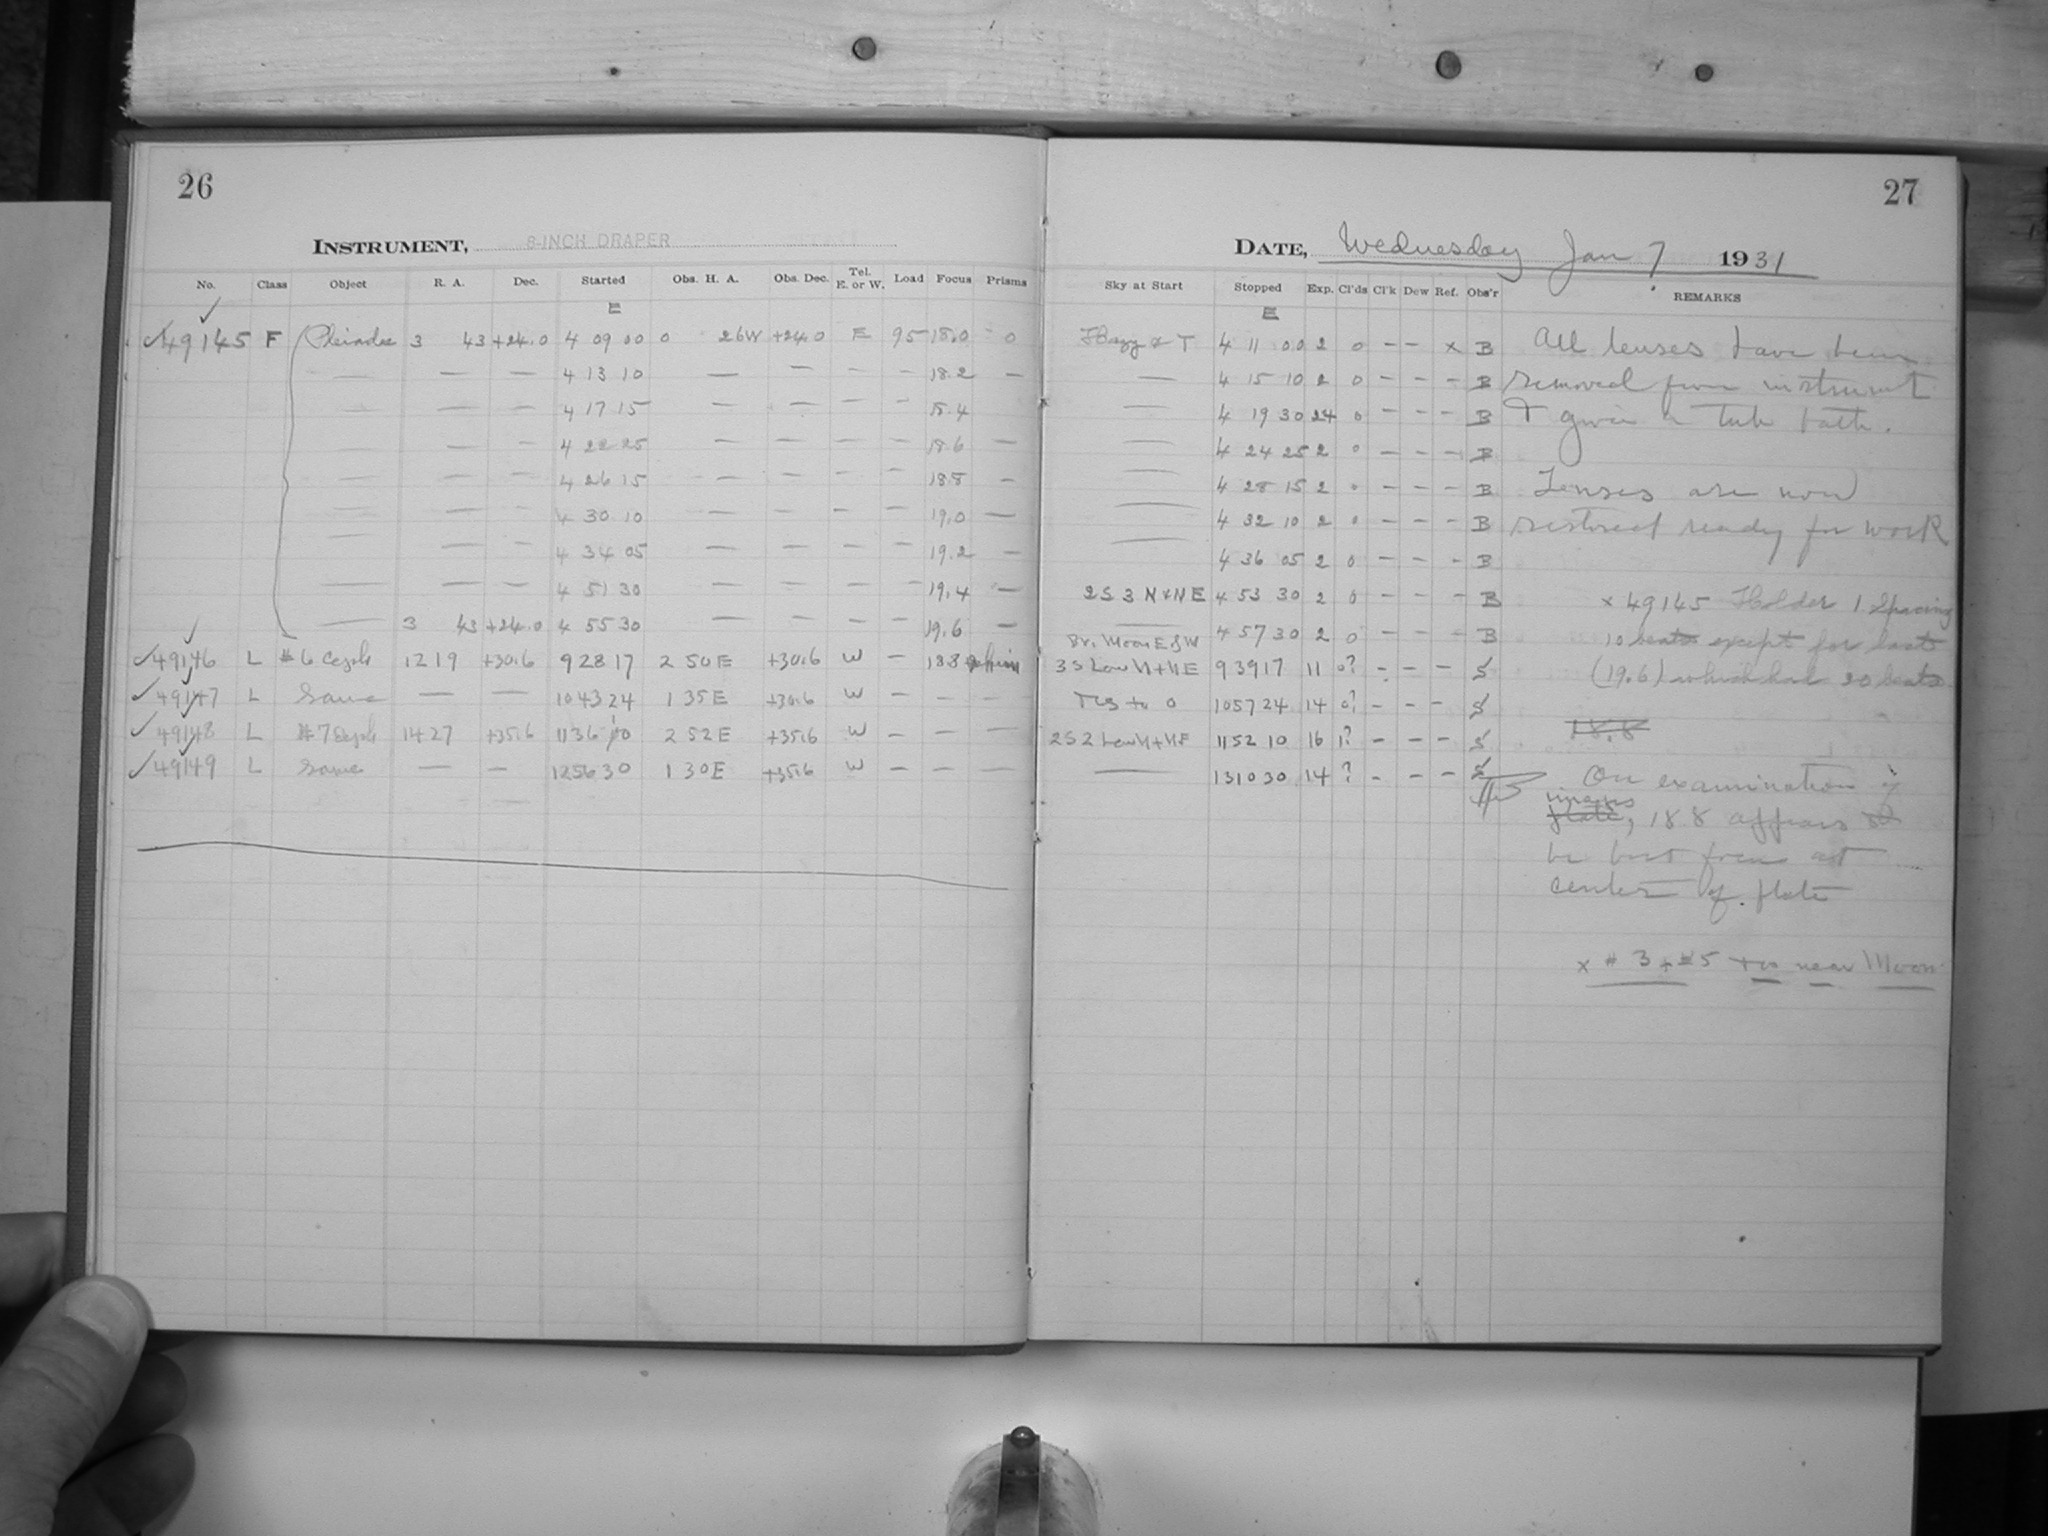 26
INSTRUMENT, 8-INCH DRAPER
No. Class Object R. A. Dec. Started Obs. H. A. Obs. Dec. Tel. E. or W. Load Focus Prisms
E
49145 F Pleiades 3 43 +24.0 4 09 00 0 26W +24.0 E 95 18.0 0
— — — 4 13 10 — — — — 18.2 —
— — — 4 17 15 — — — — 18.4
— — 4 22 25 — — — — 18.6 —
— — — 4 26 15 — — — — 18.8 —
— — — 4 30 10 — — — — 19.0 —
— — — 4 34 05 — — — — 19.2 —
— — — 4 51 30 — — — — 19.4 —
— 3 43 +24.0 4 55 30 — — — — 19.6 —
49146 L #6 1219 +30.6 9 28 17 2 50E +30.6 W — 18.8
49147 L Same — — 10 43 24 1 35E +30.6 W — — —
49148 L #7 1427 +35.6 11 36 10 2 52E +35.6 W — — —
49149 L Same — — 12 56 30 1 30E +35.6 W — — —
27
DATE, Wednesday Jan 7 1931
Sky at Start Stopped Exp. Cl'ds Cl'k Dew Ref. Obs'r REMARKS
E
Hazy & T 4 11 00 2 0 – – x B All lenses have been
— 4 15 10 2 0 – – – B removed from instrument
— 4 19 30 2¼ 0 – – – B & given a tub bath.
— 4 24 25 2 0 – – – B
— 4 28 15 2 0 – – – B Lenses are now
— 4 32 10 2 0 – – – B restored ready for work
— 4 36 05 2 0 – – – B
2S 3 N+NE 4 53 30 2 0 – – – B x 49145 Holder 1 Spacing
— 4 57 30 2 0 – – – B 10 beats except for last
Br. Moon E & W
3S Low N+NE 9 39 17 11 0? – – – S (19.6) which had 20 beats
to 0 10 57 24 14 0? – – – S
2S 2 Low N+NE 11 52 10 16 1? – – – S 18.8
— 13 10 30 14 ? – – – S On examination of
images
plate, 18.8 appears to
be best focus at
center of plate
x #3 + #5 too near Moon